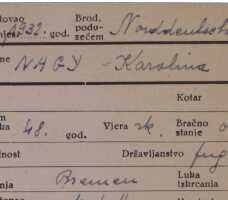 tovao
1932. god.
Brod, podu-
zećem
Norddeutsch
me
NAGY - Karolina
Kotar
m
ka 48. god.
Vjera rk.
Bračno
stanje
nost
Državljanstvo jug
nja
Bremen
Luka
iskrcanja